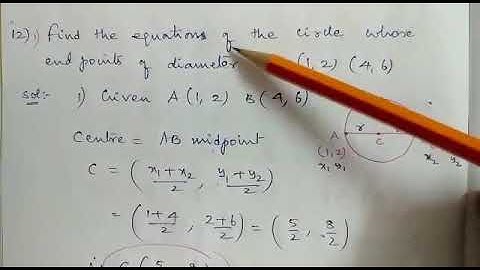 12) i) Find the equations of the circle whose
end points of diameter (1, 2) (4, 6)
Sol:- 1) Given A (1, 2) B (4, 6)
Centre = AB midpoint
C = ( x₁+x₂/2 , y₁+y₂/2 )
= ( 1+4/2 , 2+6/2 ) = ( 5/2 , 8/2 )
A r C
(1, 2)
x₁ y₁ x₂ y₂